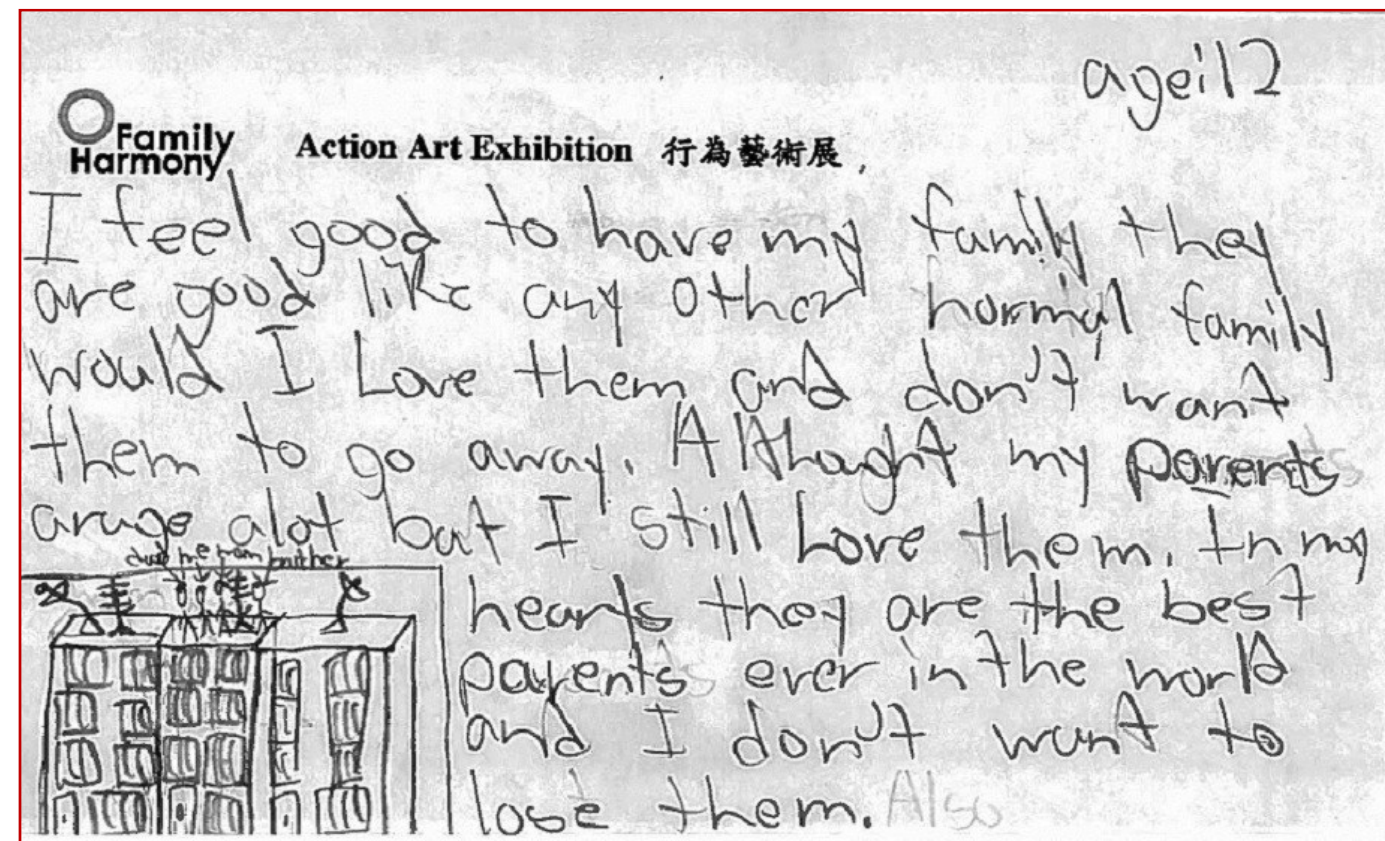 ageil2
Family
Harmony
Action Art Exhibition 行為藝術展
I feel good to have my family they
are good like any other normal family
would I Love them and don't want
them to go away. Althought my parents
aruge alot but I still Love them. In my
dad me mom brother
hearts they are the best
parents ever in the world
and I don't want to
lose them. Also